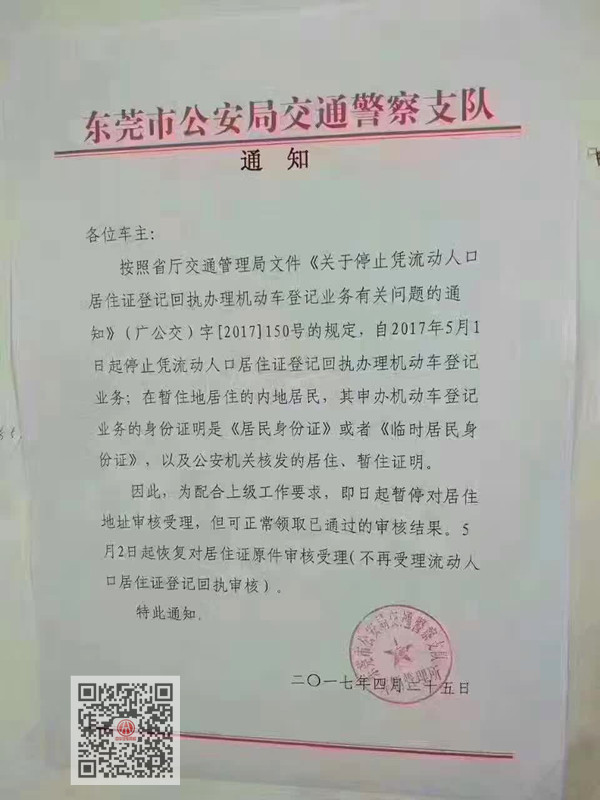 东莞市公安局交通警察支队
通 知
各位车主：
按照省厅交通管理局文件《关于停止凭流动人口
居住证登记回执办理机动车登记业务有关问题的通
知》（广公交）字[2017]150号的规定，自2017年5月1
日起停止凭流动人口居住证登记回执办理机动车登记
业务；在暂住地居住的内地居民，其申办机动车登记
业务的身份证明是《居民身份证》或者《临时居民身
份证》，以及公安机关核发的居住、暂住证明。
因此，为配合上级工作要求，即日起暂停对居住
地址审核受理，但可正常领取已通过的审核结果。5
月2日起恢复对居住证原件审核受理(不再受理流动人
口居住证登记回执审核)。
特此通知。
东莞市公安局交通警察支队
二〇一七年四月二十五日